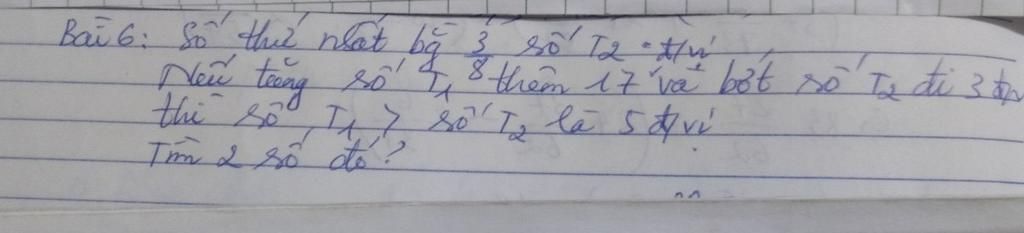 Bài 6: Số thứ nhất bg 3/8 số T2 đ/vị
Nếu tăng số T1 thêm 17 và bớt số T2 đi 3 đ/v
thì số T1 > số T2 là 5 đ/vị
Tìm 2 số đó?